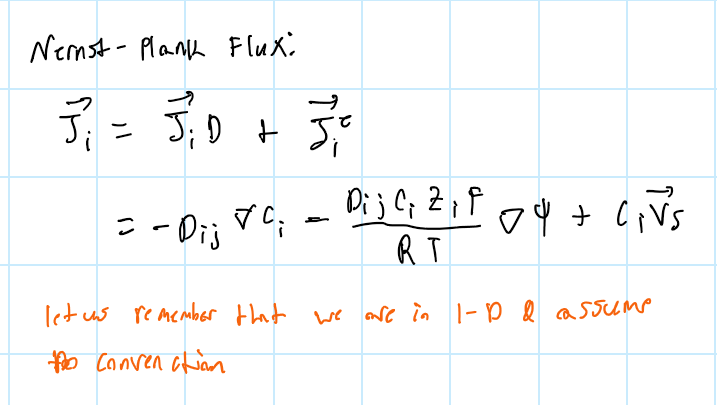 Nernst-Plank Flux:
J⃗ᵢ = J⃗ᵢD + J⃗ᵢᶜ
= -Dᵢⱼ ∇Cᵢ - (Dᵢⱼ Cᵢ Zᵢ F)/(R T) ∇ψ + Cᵢ V⃗s
let us remember that we are in 1-D & assume
convenction